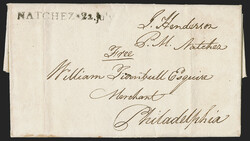 NATCHEZ
J. Henderson
P. M. Natchez
Free
William Turnbull Esquire
Merchant
Philadelphia